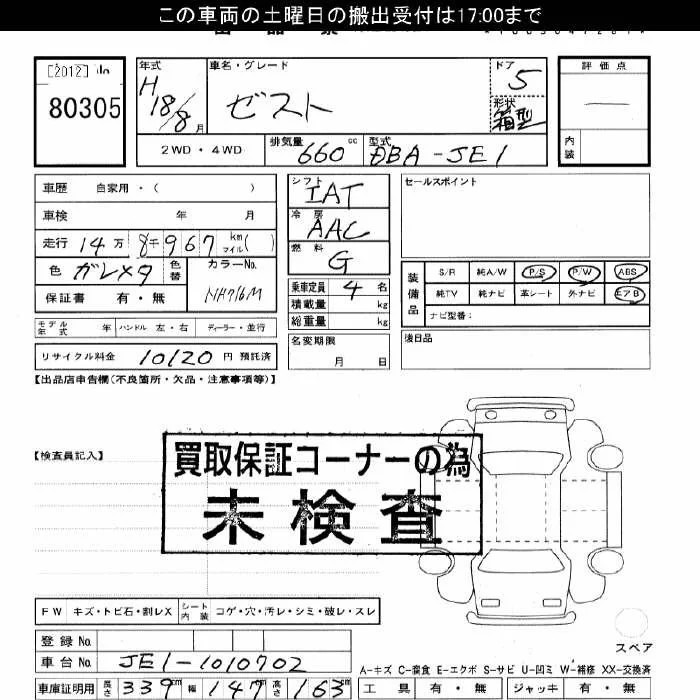 この車両の土曜日の搬出受付は17:00まで
[2012]
80305
年式
H18/8月
車名・グレード
ゼスト
ドア
5
形状
箱型
評価点
—
内装
2WD・4WD
排気量
660cc
型式
DBA-JE1
車歴 自家用・( )
車検 年 月
走行 14万 8千967 km マイル( )
色 ガレメタ 色替 カラーNo. NH716M
保証書 有・無
シフト
IAT
冷房
AAC
燃料
G
乗車定員 4名
積載量 kg
総重量 kg
名変期限
月 日
セールスポイント
装備品
S/R 純A/W P/S P/W ABS
純TV 純ナビ 革シート 外ナビ エアB
ナビ型番:
後日品
モデル年式 年 ハンドル 左・右 ディーラー・並行
リサイクル料金 10120 円 預託済
【出品店申告欄(不良箇所・欠品・注意事項等)】
【検査員記入】
買取保証コーナーの為
未検査
FW キズ・トビ石・割レX シート内装 コゲ・穴・汚レ・シミ・破レ・スレ
登録No.
車台No. JE1-1010702
車庫証明用 長さ 339cm 幅 147cm 高さ 163cm
スペア
A-キズ C-腐食 E-エクボ S-サビ U-凹ミ W-補修 XX-交換済
工具 有・無 ジャッキ 有・無